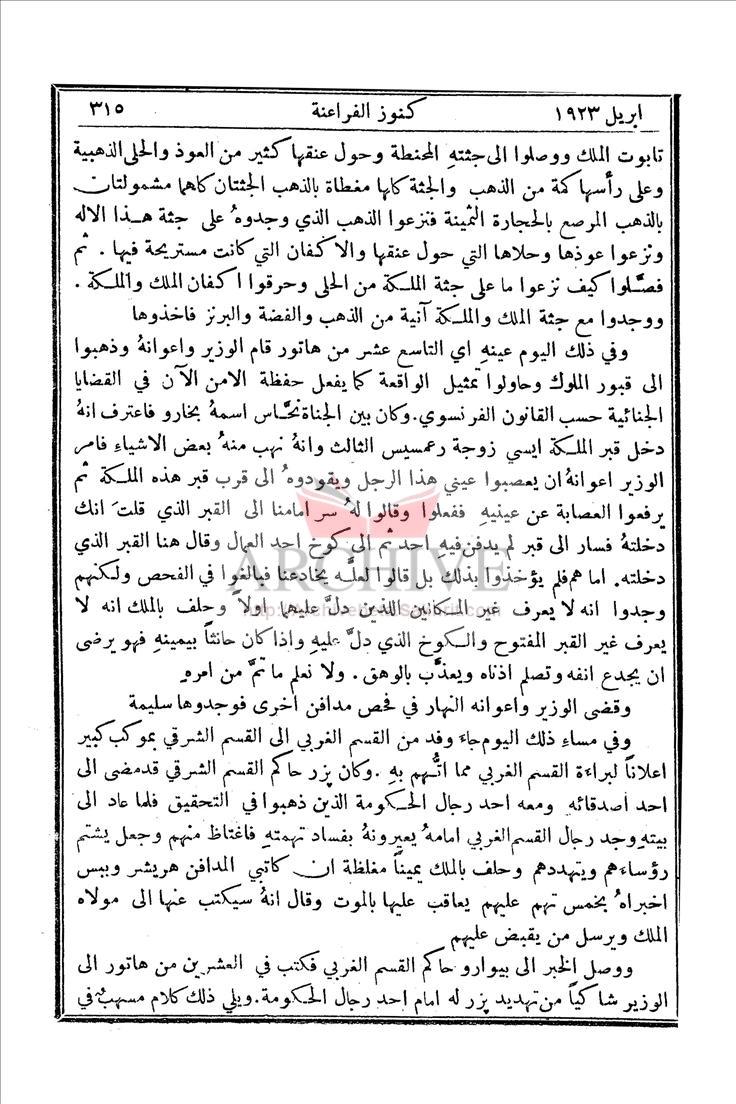 ابريل ١٩٢٣ كنوز الفراعنة ٣١٥
تابوت الملك ووصلوا الى جثتهِ المحنطة وحول عنقها كثير من العوذ والحلى الذهبية
وعلى رأسها كمة من الذهب والجثة كلها مغطاة بالذهب الجثتان كلاهما مشمولتان
بالذهب المرصع بالحجارة الثمينة فنزعوا الذهب الذي وجدوهُ على جثة هذا الاله
ونزعوا عوذها وحلاها التي حول عنقها والاكفان التي كانت مستريحة فيها . ثم
فصَّلوا كيف نزعوا ما على جثة الملكة من الحلى وحرقوا اكفان الملك والملكة .
ووجدوا مع جثة الملك والملكة آنية من الذهب والفضة والبرنز فاخذوها
وفي ذلك اليوم عينهِ اي التاسع عشر من هاتور قام الوزير واعوانهُ وذهبوا
الى قبور الملوك وحاولوا تمثيل الواقعة كما يفعل حفظة الامن الآن في القضايا
الجنائية حسب القانون الفرنسوي. وكان بين الجناة نحَّاس اسمهُ بخارو فاعترف انهُ
دخل قبر الملكة ايسي زوجة رعمسيس الثالث وانهُ نهب منهُ بعض الاشياء فامر
الوزير اعوانهُ ان يعصبوا عيني هذا الرجل ويقودوهُ الى قرب قبر هذه الملكة ثم
يرفعوا العصابة عن عينيهِ ففعلوا وقالوا لهُ سر امامنا الى القبر الذي قلتَ انك
دخلتهُ فسار الى قبر لم يدفن فيهِ احد ثم الى كوخ احد العمال وقال هنا القبر الذي
دخلته. اما هم فلم يؤخذوا بذلك بل قالوا لعلَّـه يخادعنا فبالغوا في الفحص ولكنهم
وجدوا انه لا يعرف غير المكانين اللذين دلَّ عليهما اولاً وحلف بالملك انه لا
يعرف غير القبر المفتوح والكوخ الذي دلَّ عليهِ واذا كان حانثاً بيمينهِ فهو يرضى
ان يجدع انفه وتصلم اذناه ويعذَّب بالوهق . ولا نعلم ما تمَّ من امرهِ
وقضى الوزير واعوانه النهار في فحص مدافن اخرى فوجدوها سليمة
وفي مساء ذلك اليوم جاء وفد من القسم الغربي الى القسم الشرقي بموكب كبير
اعلاناً لبراءة القسم الغربي مما اتُّهم بهِ . وكان پزر حاكم القسم الشرقي قد مضى الى
احد اصدقائهِ ومعه احد رجال الحكومة الذين ذهبوا في التحقيق فلما عاد الى
بيتهِ وجد رجال القسم الغربي امامهُ يعيرونهُ بفساد تهمتهِ فاغتاظ منهم وجعل يشتم
رؤساءهم ويتهددهم وحلف بالملك يميناً مغلظة ان كاتبي المدافن هريشر وببس
اخبراهُ بخمس تهم عليهم يعاقب عليها بالموت وقال انهُ سيكتب عنها الى مولاه
الملك ويرسل من يقبض عليهم
ووصل الخبر الى بيوارو حاكم القسم الغربي فكتب في العشرين من هاتور الى
الوزير شاكياً من تهديد پزر له امام احد رجال الحكومة. ويلي ذلك كلام مسهب في
ARCHIVE